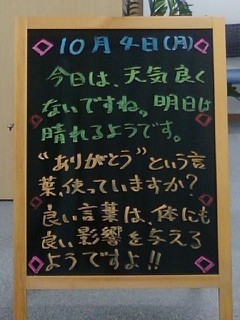 10月4日(月)
今日は、天気良く
ないですね。明日は
晴れるようです。
“ありがとう”という言
葉、使っていますか?
良い言葉は、体にも
良い影響を与える
ようですよ!!